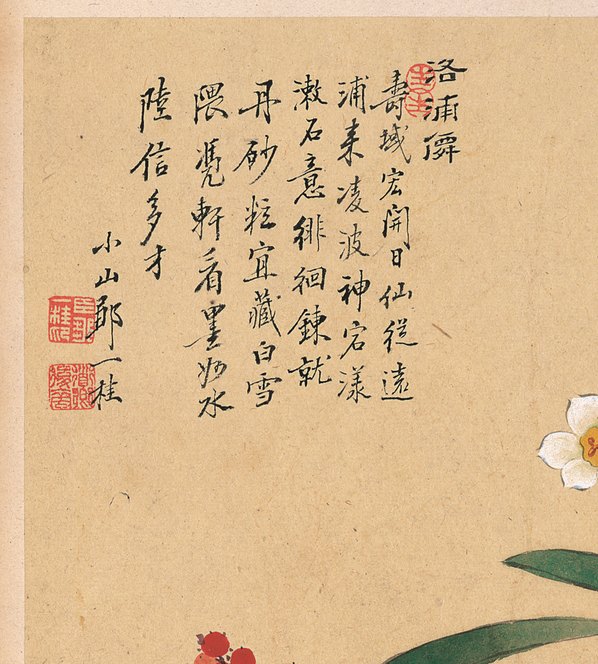 洛浦僊
壽域宏開日仙從遠
浦來凌波神宕漾
漱石意徘徊鍊就
丹砂粒宜藏白雪
隈憑軒看墨妙水
陸信多才
小山鄒一桂